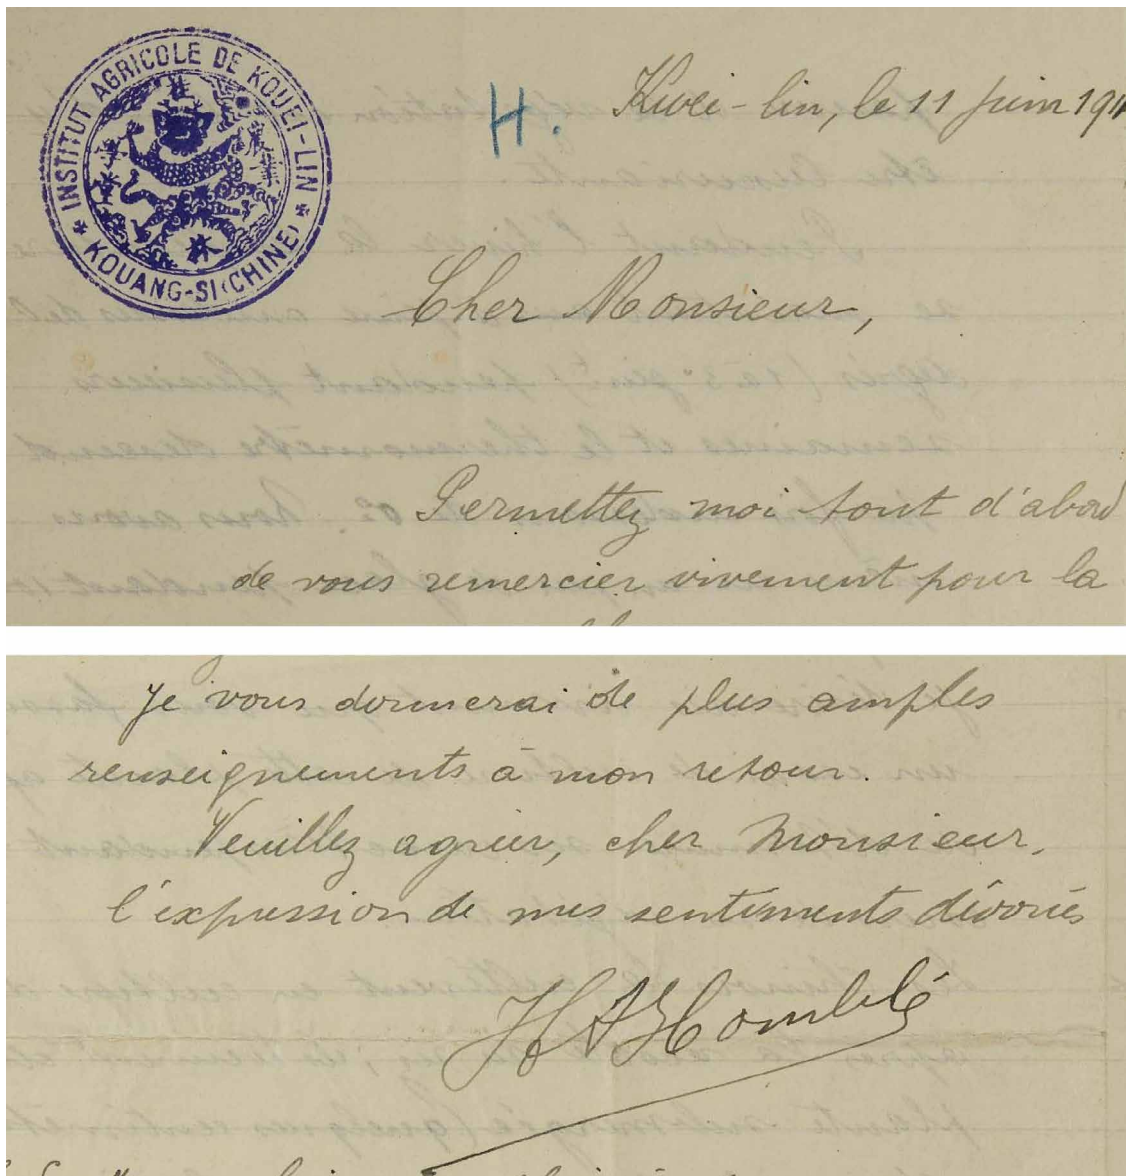 INSTITUT AGRICOLE DE KOUEI-LIN
* KOUANG-SI (CHINE) *
H.
Kwei-lin, le 11 juin 191
Cher Monsieur,
Permettez moi tout d'abord
de vous remercier vivement pour la
Je vous donnerai de plus amples
renseignements à mon retour.
Veuillez agréer, cher Monsieur,
l'expression de mes sentiments dévoués